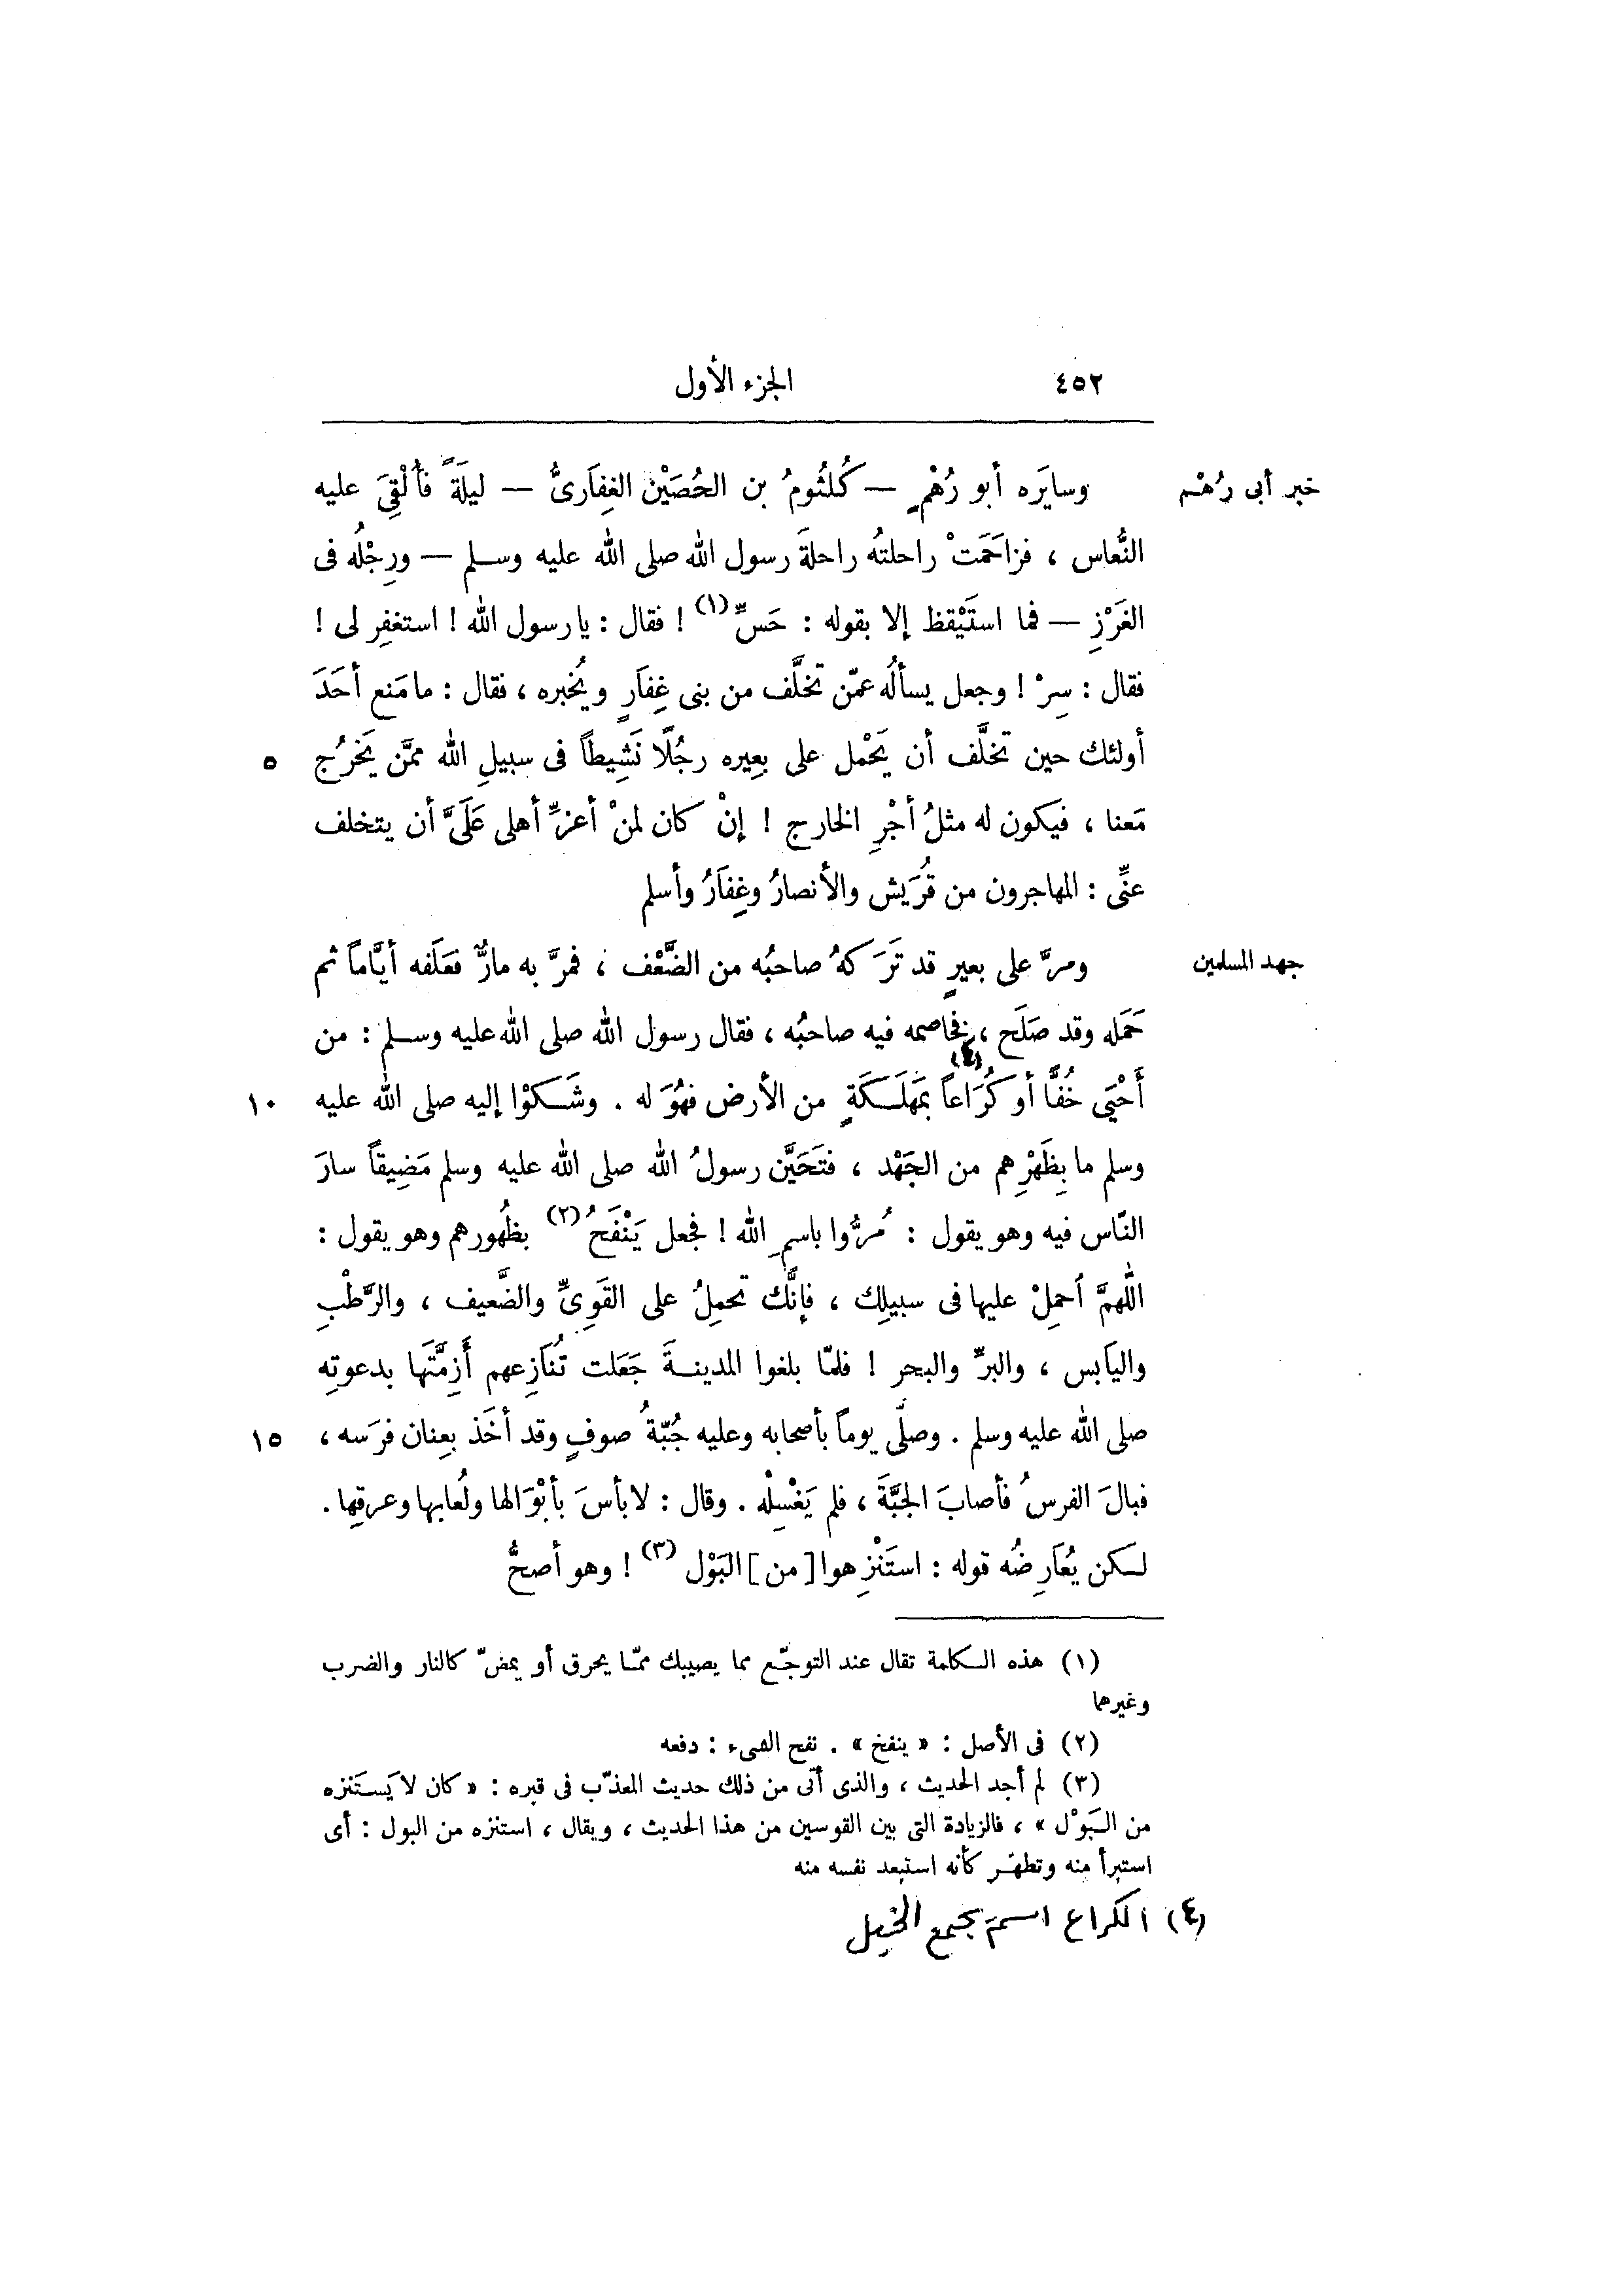 ٤٥٢ الجزء الأول
خبر أبى رُهْم
وسايَره أبو رُهْمٍ — كُلثُومُ بن الحُصَيْن الغِفَارىُّ — ليلَةً فأُلْقِىَ عليه
النُّعاس ، فزاحَمَتْ راحلتُه راحلةَ رسول الله صلى الله عليه وسلم — ورِجْلُه فى
الغَرْزِ — فما استَيْقظ إلا بقوله : حَسِّ (١) ! فقال : يا رسول الله ! استغفِر لى !
فقال : سِرْ ! وجعل يسألُه عمّن تخلَّف من بنى غِفَارٍ ويُخبره ، فقال : ما مَنع أحَدَ
أولئك حين تخلَّف أن يَحْمل على بعِيره رجُلًا نَشِيطاً فى سبيلِ الله ممَّن يَخرُج
٥
مَعنا ، فيكون له مثلُ أجْرِ الخارج ! إنْ كان لمنْ أعزِّ أهلى عَلَىَّ أن يتخلف
عنِّى : المهاجرون من قُرَيش والأنصارُ وغِفَارُ وأسلم
جهد المسلمين
ومرَّ على بعيرٍ قد تَرَكهُ صاحبُه من الضَّعْف ، فمرَّ به مارٌّ فعَلَفه أيَّاماً ثم
حَمَله وقد صَلَح ، فخاصمه فيه صاحبُه ، فقال رسول الله صلى الله عليه وسلم : من
أَحْيَى خُفًّا أو كُرَاعاً (٤) بمَهلَكَةٍ من الأرض فهُوَ له . وشَكَوْا إليه صلى الله عليه
١٠
وسلم ما بِظَهْرِهم من الجَهْد ، فتَحَيَّن رسولُ الله صلى الله عليه وسلم مَضِيقاً سارَ
النّاس فيه وهو يقول : مُرُّوا باسمِ الله ! فجعل يَنْفَحُ (٢) بظُهورهم وهو يقول :
اللّهمَّ أحمِلْ عليها فى سبيلِك ، فإنَّك تحمِلُ على القَوِىِّ والضَّعيف ، والرَّطْبِ
واليَابس ، والبرِّ والبحر ! فلمّا بلغوا المدينةَ جَعَلت تُنَازِعهم أَزِمَّتَها بدعوتِه
صلى الله عليه وسلم . وصلّى يوماً بأصحابه وعليه جُبّةُ صوفٍ وقد أخَذ بعِنان فرَسه ،
١٥
فبالَ الفرسُ فأصابَ الجبَّةَ ، فلم يَغْسِلْه . وقال : لا بأسَ بأبْوَالها ولُعابها وعرقِها .
لكن يُعَارِضُه قوله : استَنْزِهوا [ من ] البَوْل (٣) ! وهو أصحُّ
(١) هذه الكلمة تقال عند التوجّع مما يصيبك ممّا يحرق أو يمضّ كالنار والضرب
وغيرهما
(٢) فى الأصل : « ينفخ » . نفح الشىء : دفعه
(٣) لم أجد الحديث ، والذى أتى من ذلك حديث المعذّب فى قبره : « كان لا يَستَنزه
من البَوْل » ، فالزيادة التى بين القوسين من هذا الحديث ، ويقال ، استنزه من البول : أى
استبرأ منه وتطهّر كأنه استبعد نفسه منه
(٤) الكراع اسم يجمع الخيل